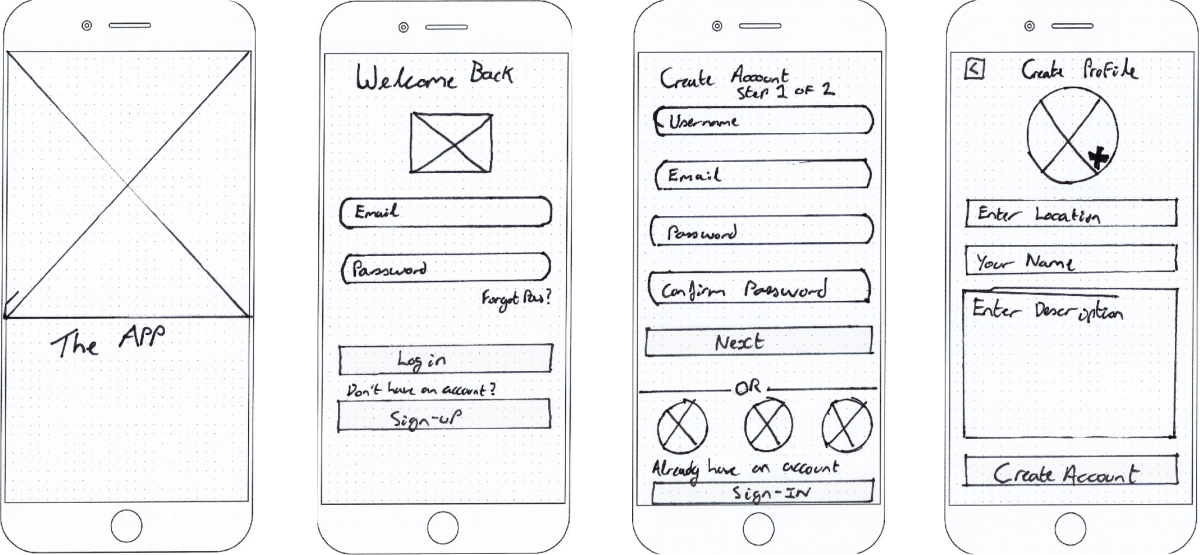 The APP
Welcome Back
Email
Password
Forgot Pas?
Log in
Don't have an account?
Sign-up
Create Account
Step 1 of 2
Username
Email
Password
Confirm Password
Next
OR
Already have an account
Sign-IN
<
Create Profile
Enter Location
Your Name
Enter Description
Create Account